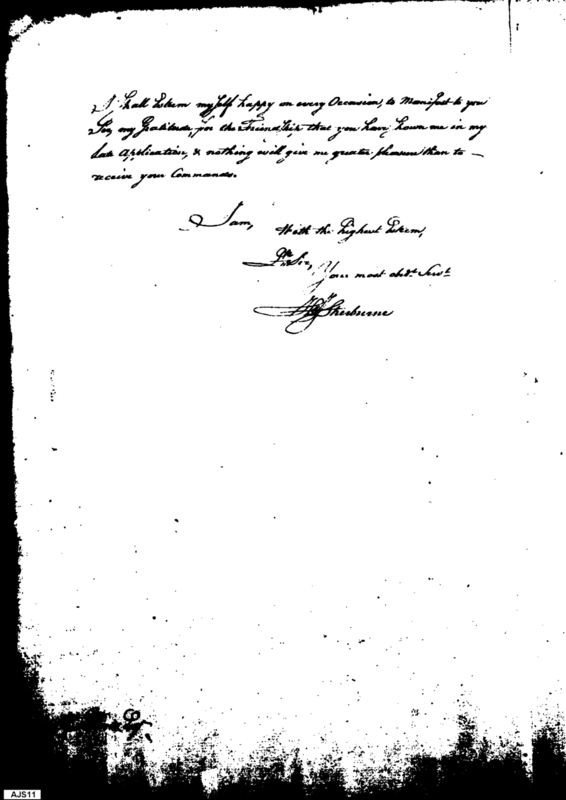 I shall Esteem myself happy on every Occasion, to Manifest to you
Sir, my Gratitude, for the Friendship that you have shown me in my
late Application, & nothing will give me greater pleasure than to —
receive your Commands.
I am,
With the highest Esteem,
Dr Sir,
Your most obdt. Servt.
Hy Sherburne
AJS11